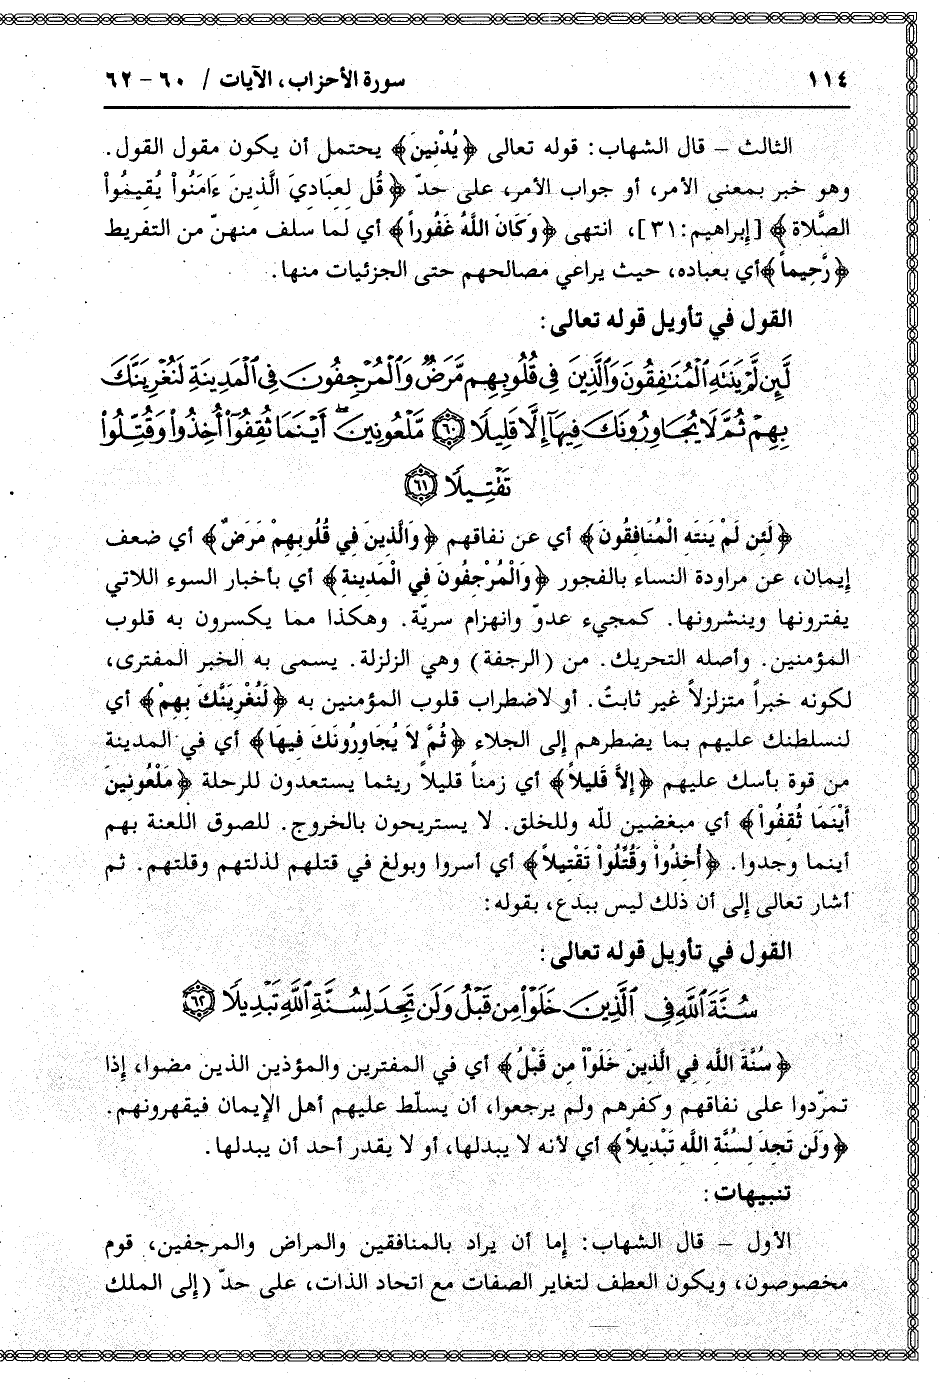 ١١٤ سورة الأحزاب، الآيات / ٦٠ – ٦٢
الثالث – قال الشهاب: قوله تعالى ﴿يُدْنِينَ﴾ يحتمل أن يكون مقول القول.
وهو خبر بمعنى الأمر، أو جواب الأمر، على حدّ ﴿قُل لِعِبَادِيَ الَّذِينَ ءَامَنُواْ يُقِيمُواْ
الصَّلاةَ﴾ [إبراهيم:٣١]، انتهى ﴿وَكَانَ اللَّهُ غَفُوراً﴾ أي لما سلف منهنّ من التفريط
﴿رَّحِيماً﴾أي بعباده، حيث يراعي مصالحهم حتى الجزئيات منها.
القول في تأويل قوله تعالى:
لَّئِن لَّمْ يَنتَهِ ٱلْمُنَٰفِقُونَ وَٱلَّذِينَ فِى قُلُوبِهِم مَّرَضٌ وَٱلْمُرْجِفُونَ فِى ٱلْمَدِينَةِ لَنُغْرِيَنَّكَ
بِهِمْ ثُمَّ لَا يُجَاوِرُونَكَ فِيهَآ إِلَّا قَلِيلًا ﴿٦٠﴾ مَّلْعُونِينَ ۖ أَيْنَمَا ثُقِفُوٓاْ أُخِذُواْ وَقُتِّلُواْ
تَقْتِيلًا ﴿٦١﴾
﴿لَئِن لَمْ يَنتَهِ الْمُنَافِقُونَ﴾ أي عن نفاقهم ﴿وَالَّذِينَ فِي قُلُوبِهِمْ مَرَضٌ﴾ أي ضعف
إيمان، عن مراودة النساء بالفجور ﴿وَالْمُرْجِفُونَ فِي الْمَدِينةِ﴾ أي بأخبار السوء اللاتي
يفترونها وينشرونها. كمجيء عدوّ وانهزام سريّة. وهكذا مما يكسرون به قلوب
المؤمنين. وأصله التحريك. من (الرجفة) وهي الزلزلة. يسمى به الخبر المفترى،
لكونه خبراً متزلزلاً غير ثابتْ. أو لاضطراب قلوب المؤمنين به ﴿لَنُغْرِيَنَّكَ بِهِمْ﴾ أي
لنسلطنك عليهم بما يضطرهم إلى الجلاء ﴿ثُمَّ لاَ يُجَاوِرُونَكَ فِيهَا﴾ أي في المدينة
من قوة بأسك عليهم ﴿إِلاَّ قَلِيلاً﴾ أي زمناً قليلاً ريثما يستعدون للرحلة ﴿مَلْعُونِينَ
أَيْنَمَا ثُقِفُواْ﴾ أي مبغضين لله وللخلق. لا يستريحون بالخروج. للصوق اللعنة بهم
أينما وجدوا. ﴿أُخِذُواْ وَقُتِّلُواْ تَقْتِيلاً﴾ أي أسروا وبولغ في قتلهم لذلتهم وقلتهم. ثم
أشار تعالى إلى أن ذلك ليس ببدع، بقوله:
القول في تأويل قوله تعالى:
سُنَّةَ ٱللَّهِ فِى ٱلَّذِينَ خَلَوْاْ مِن قَبْلُ وَلَن تَجِدَ لِسُنَّةِ ٱللَّهِ تَبْدِيلًا ﴿٦٢﴾
﴿سُنَّةَ اللَّهِ فِي الَّذِينَ خَلَوْاْ مِن قَبْلُ﴾ أي في المفترين والمؤذين الذين مضوا، إذا
تمرّدوا على نفاقهم وكفرهم ولم يرجعوا، أن يسلّط عليهم أهل الإيمان فيقهرونهم.
﴿وَلَن تَجِدَ لِسُنَّةِ اللَّهِ تَبْدِيلاً﴾ أي لأنه لا يبدلها، أو لا يقدر أحد أن يبدلها.
تنبيهات:
الأول – قال الشهاب: إما أن يراد بالمنافقين والمراض والمرجفين، قوم
مخصوصون، ويكون العطف لتغاير الصفات مع اتحاد الذات، على حدّ (إلى الملك